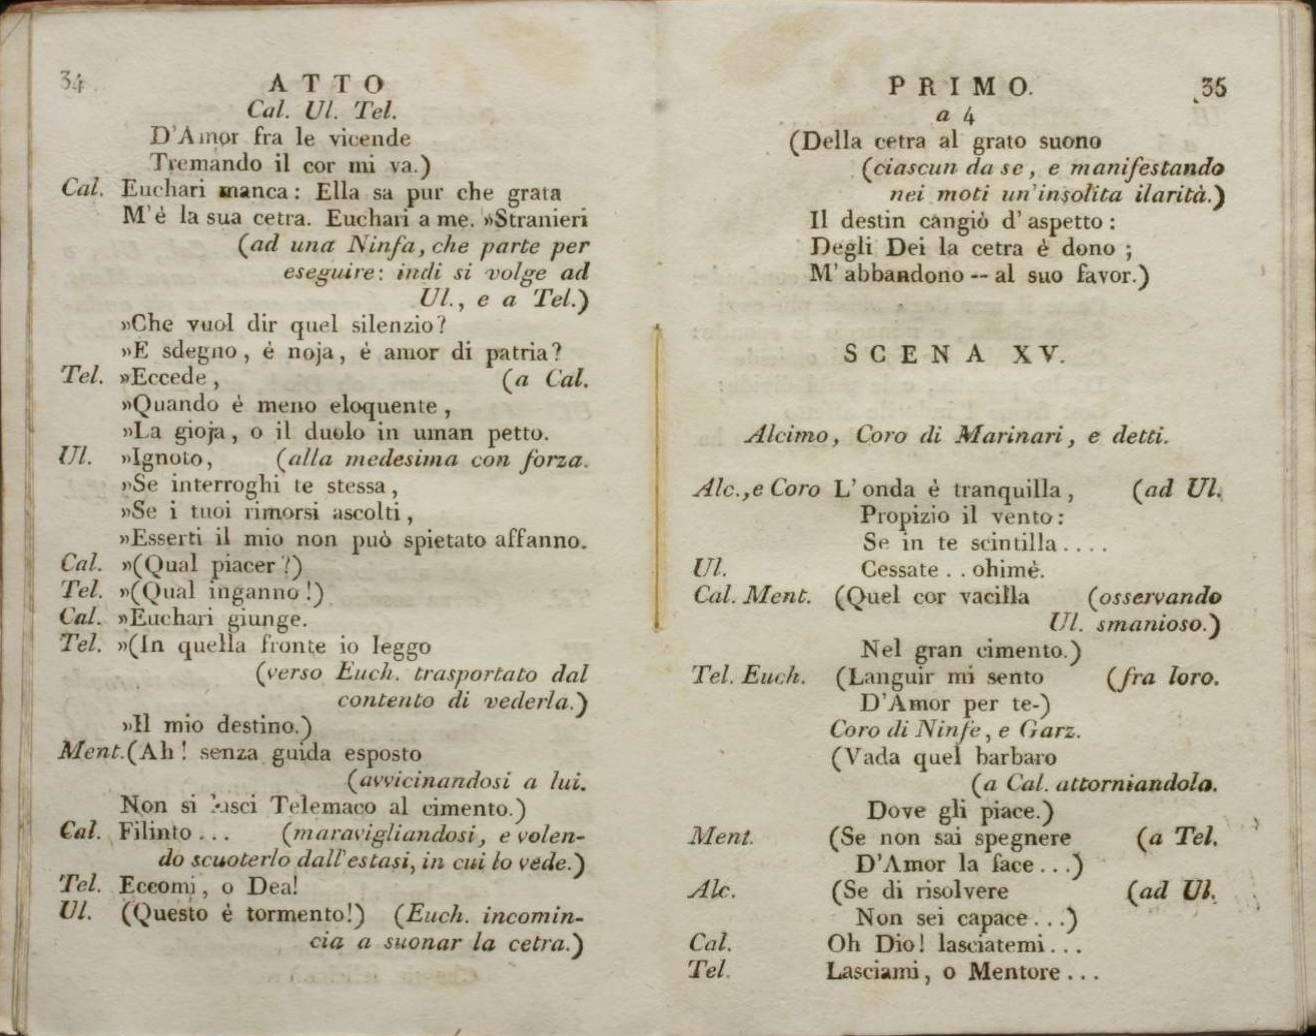 34
A T T O
Cal. Ul. Tel.
D'Amor fra le vicende
Tremando il cor mi va.)
Cal. Euchari manca: Ella sa pur che grata
M'é la sua cetra. Euchari a me. »Stranieri
(ad una Ninfa, che parte per
eseguire: indi si volge ad
Ul., e a Tel.)
»Che vuol dir quel silenzio?
»E sdegno, é noja, é amor di patria?
Tel. »Eccede, (a Cal.
»Quando é meno eloquente,
»La gioja, o il duolo in uman petto.
Ul. »Ignoto, (alla medesima con forza.
»Se interroghi te stessa,
»Se i tuoi rimorsi ascolti,
»Esserti il mio non può spietato affanno.
Cal. »(Qual piacer?)
Tel. »(Qual inganno!)
Cal. »Euchari giunge.
Tel. »(In quella fronte io leggo
(verso Euch. trasportato dal
contento di vederla.)
»Il mio destino.)
Ment.(Ah! senza guida esposto
(avvicinandosi a lui.
Non si lasci Telemaco al cimento.)
Cal. Filinto... (maravigliandosi, e volen-
do scuoterlo dall'estasi, in cui lo vede.)
Tel. Eccomi, o Dea!
Ul. (Questo é tormento!) (Euch. incomin-
cia a suonar la cetra.)
P R I M O. 35
a 4
(Della cetra al grato suono
(ciascun da se, e manifestando
nei moti un'insolita ilarità.)
Il destin cangiò d'aspetto:
Degli Dei la cetra è dono;
M'abbandono -- al suo favor.)
S C E N A XV.
Alcimo, Coro di Marinari, e detti.
Alc., e Coro L'onda è tranquilla, (ad Ul.
Propizio il vento:
Se in te scintilla....
Ul. Cessate . . ohimè.
Cal. Ment. (Quel cor vacilla (osservando
Ul. smanioso.)
Nel gran cimento.)
Tel. Euch. (Languir mi sento (fra loro.
D'Amor per te-)
Coro di Ninfe, e Garz.
(Vada quel barbaro
(a Cal. attorniandola.
Dove gli piace.)
Ment. (Se non sai spegnere (a Tel.
D'Amor la face...)
Alc. (Se di risolvere (ad Ul.
Non sei capace...)
Cal. Oh Dio! lasciatemi...
Tel. Lasciami, o Mentore...